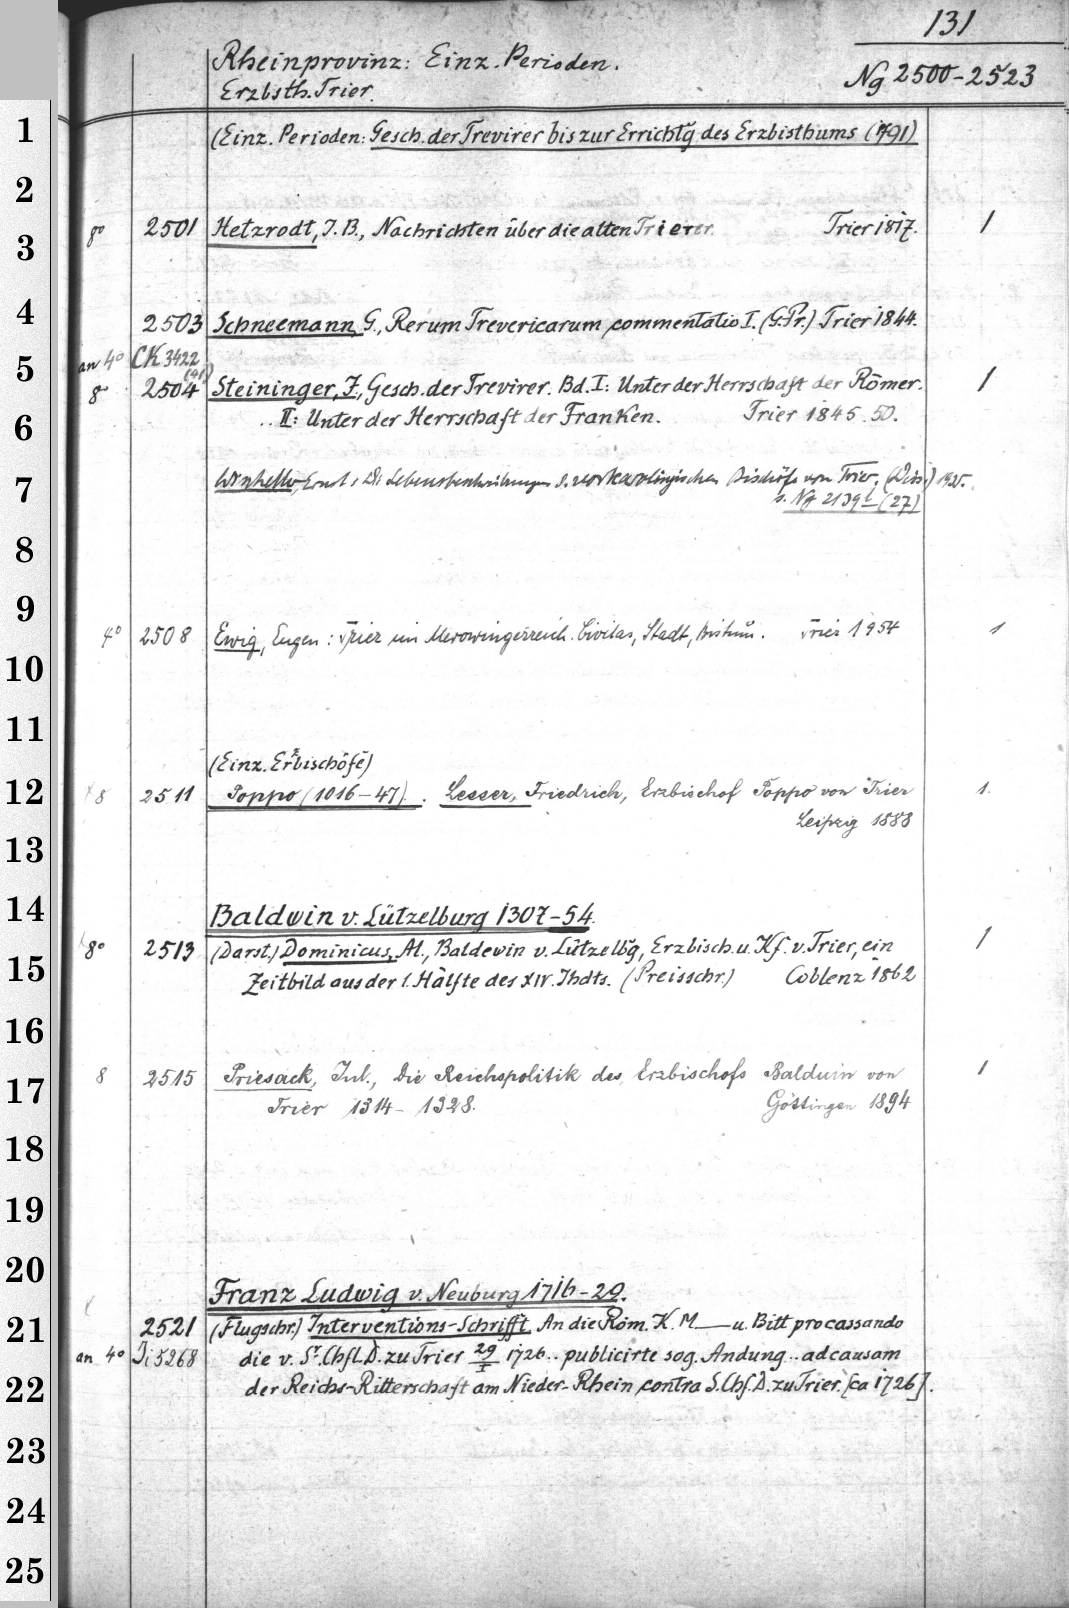 131
Rheinprovinz: Einz. Perioden.
Erzbsth. Trier.
Ng 2500-2523
1
(Einz. Perioden: Gesch. der Trevirer bis zur Errichtg des Erzbisthums (791)
2
8° 2501 Hetzrodt, J. B., Nachrichten über die alten Trierer. Trier 1817. 1
3
4
2503 Schneemann G., Rerum Trevericarum commentatio I. (G.Pr.) Trier 1844.
an 4° CK 3422
(41)
5
8° 2504 Steininger, J., Gesch. der Trevirer. Bd. I: Unter der Herrschaft der Römer. 1
6
.. II: Unter der Herrschaft der Franken. Trier 1845. 50.
7
Winheller, Ernst: Die Lebensbeschreibungen d. vorkarolingischen Bischöfe von Trier. (Diss.) 1925.
s. Ng 2139 (27)
8
9
4° 2508 Ewig, Eugen: Trier im Merowingerreich. Civitas, Stadt, Bistum. Trier 1954 1
10
11
(Einz. Erzbischöfe)
12
8 2511 Poppo (1016-47). Lesser, Friedrich, Erzbischof Poppo von Trier 1.
Leipzig 1888
13
14
Baldwin v. Lützelburg 1307-54.
8° 2513 (Darst.) Dominicus, Al., Baldewin v. Lützelbg, Erzbisch. u. Kf. v. Trier, ein 1
15
Zeitbild aus der 1. Hälfte des XIV. Jhdts. (Preisschr.) Coblenz 1862
16
17
8 2515 Priesack, Jul., Die Reichspolitik des Erzbischofs Balduin von 1
Trier 1314-1328. Göttingen 1894
18
19
20
Franz Ludwig v. Neuburg 1716-29.
21
2521 (Flugschr.) Interventions-Schrifft An die Röm. K. M— u. Bitt pro cassando
an 4° Ji 5268 die v. Sr. Chfl. D. zu Trier 29/I 1726.. publicirte sog. Andung.. ad causam
22
der Reichs-Ritterschaft am Nieder-Rhein contra S. Chf. D. zu Trier. [ca 1726].
23
24
25